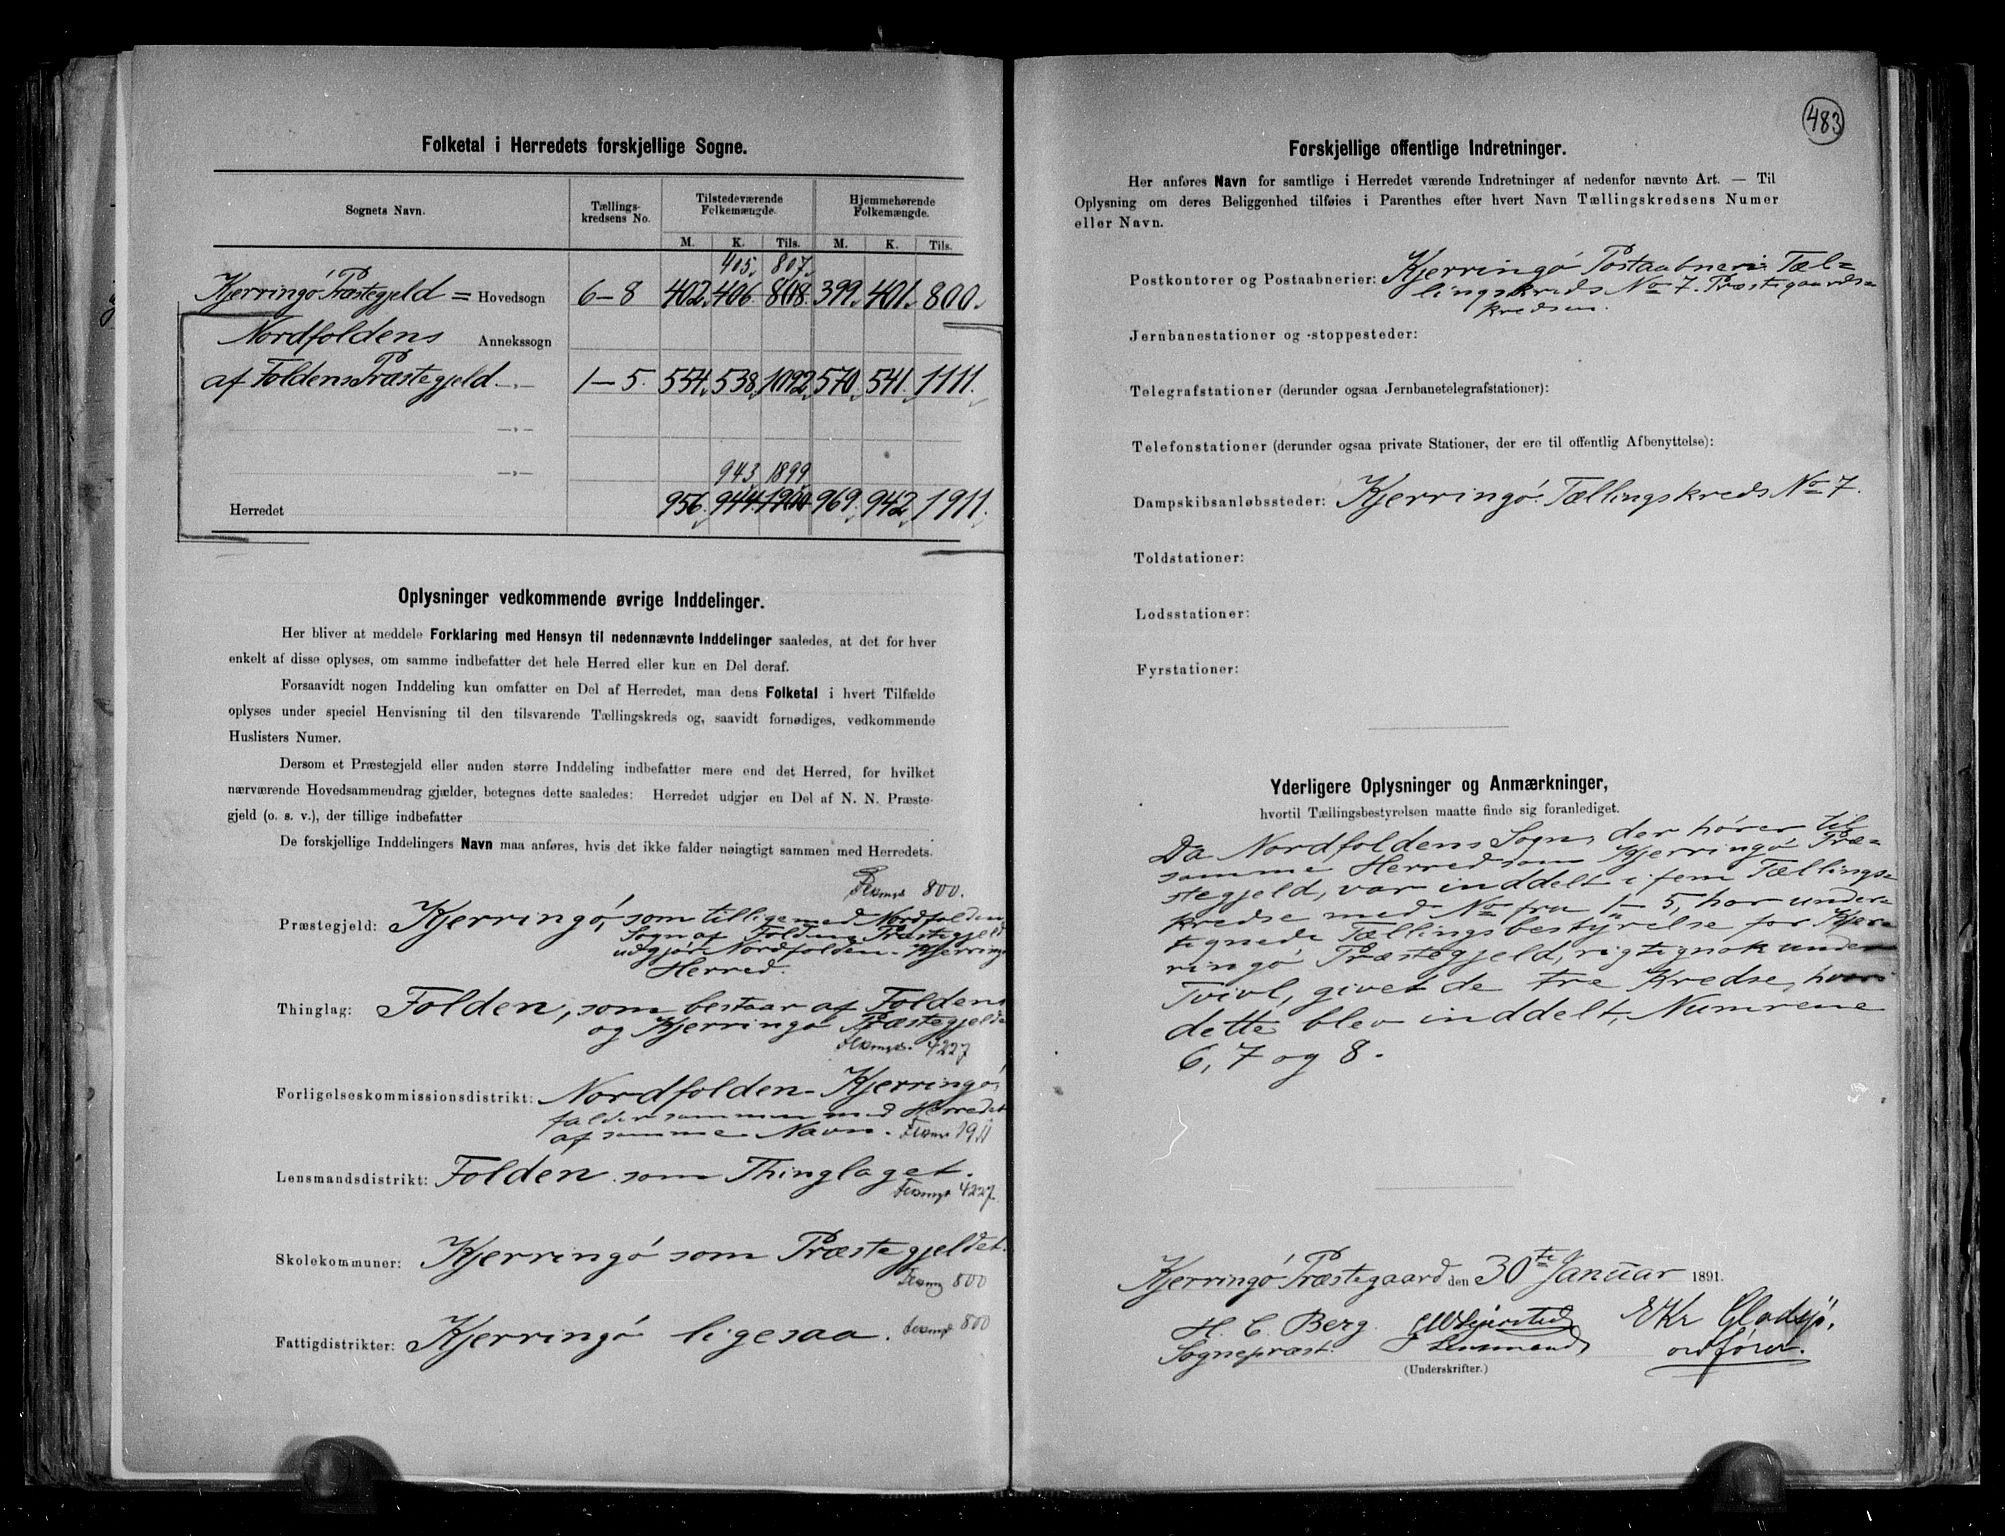 Folketal i Herredets forskjellige Sogne.
Sognets Navn. Tællings-kredsens No. Tilstedeværende Folkemængde. Hjemmehørende Folkemængde.
M. K. Tils. M. K. Tils.
405 807
Kjerringö Præstegjeld = Hovedsogn 6-8 402 406 808 399 401 800
Nordfoldens Annekssogn
af Foldens Præstegjeld -„- 1-5. 554 538 1092 570 541 1111
-„-
943 1899
-„-
Herredet 956 944 1900 969 942 1911
Oplysninger vedkommende øvrige Inddelinger.
Her bliver at meddele Forklaring med Hensyn til nedennævnte Inddelinger saaledes, at det for hver
enkelt af disse oplyses, om samme indbefatter det hele Herred eller kun en Del deraf.
Forsaavidt nogen Inddeling kun omfatter en Del af Herredet, maa dens Folketal i hvert Tilfælde
oplyses under speciel Henvisning til den tilsvarende Tællingskreds og, saavidt fornødiges, vedkommende
Huslisters Numer.
Dersom et Præstegjeld eller anden større Inddeling indbefatter mere end det Herred, for hvilket
nærværende Hovedsammendrag gjælder, betegnes dette saaledes: Herredet udgjør en Del af N. N. Præste-
gjeld (o. s. v.), der tillige indbefatter
De forskjellige Inddelingers Navn maa anføres, hvis det ikke falder nøiagtigt sammen med Herredets.
800.
Præstegjeld: Kjerringö, som tilligemed Nordfolden
Sogn af Folden Præstegjeld
udgjør Nordfolden-Kjerring
Herred.
Thinglag: Folden, som bestaar af Foldens
og Kjerringö Præstegjelde
4227
Forligelseskommissionsdistrikt: Nordfolden-Kjerringö,
falder sammen med Herredet
af samme Navn. 1911
Lensmandsdistrikt: Folden som Thinglaget.
4227.
Skolekommuner: Kjerringö som Præstegjeldet.
800
Fattigdistrikter: Kjerringö ligesaa. 800
483
Forskjellige offentlige Indretninger.
Her anføres Navn for samtlige i Herredet værende Indretninger af nedenfor nævnte Art. — Til
Oplysning om deres Beliggenhed tilføies i Parenthes efter hvert Navn Tællingskredsens Numer
eller Navn.
Postkontorer og Postaabnerier: Kjerringö Postaabneri: Tæl=
lingskreds No 7. Præstegaards=
kredsen.
Jernbanestationer og -stoppesteder:
Telegrafstationer (derunder ogsaa Jernbanetelegrafstationer):
Telefonstationer (derunder ogsaa private Stationer, der ere til offentlig Afbenyttelse):
Dampskibsanløbssteder: Kjerringö. Tællingskreds No 7.
Toldstationer:
Lodsstationer:
Fyrstationer:
Yderligere Oplysninger og Anmærkninger,
hvortil Tællingsbestyrelsen maatte finde sig foranlediget.
Da Nordfoldens Sogn, der hører til
samme Herred som Kjerringö Præ=
stegjeld, var inddelt i fem Tællings=
kredse med No fra 1-5, har under=
tegnede Tællingsbestyrelse for Kjer=
ringö Præstegjeld, rigtignok under
Tvivl, givet de tre Kredse, hvori
dette blev inddelt, Numrene
6, 7 og 8.
Kjerringö Præstegaard den 30te Januar 1891.
H. C. Berg. E Kr Gladsjö,
Sognepræst. Lensmand ordförer.
(Underskrifter.)